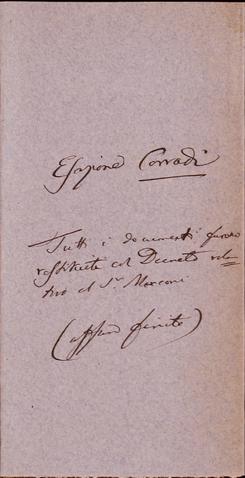 Esazione Corradi
Tutti i documenti furono
restituite col Decreto rela=
tivo al Sr. Marconi
(affare finito)